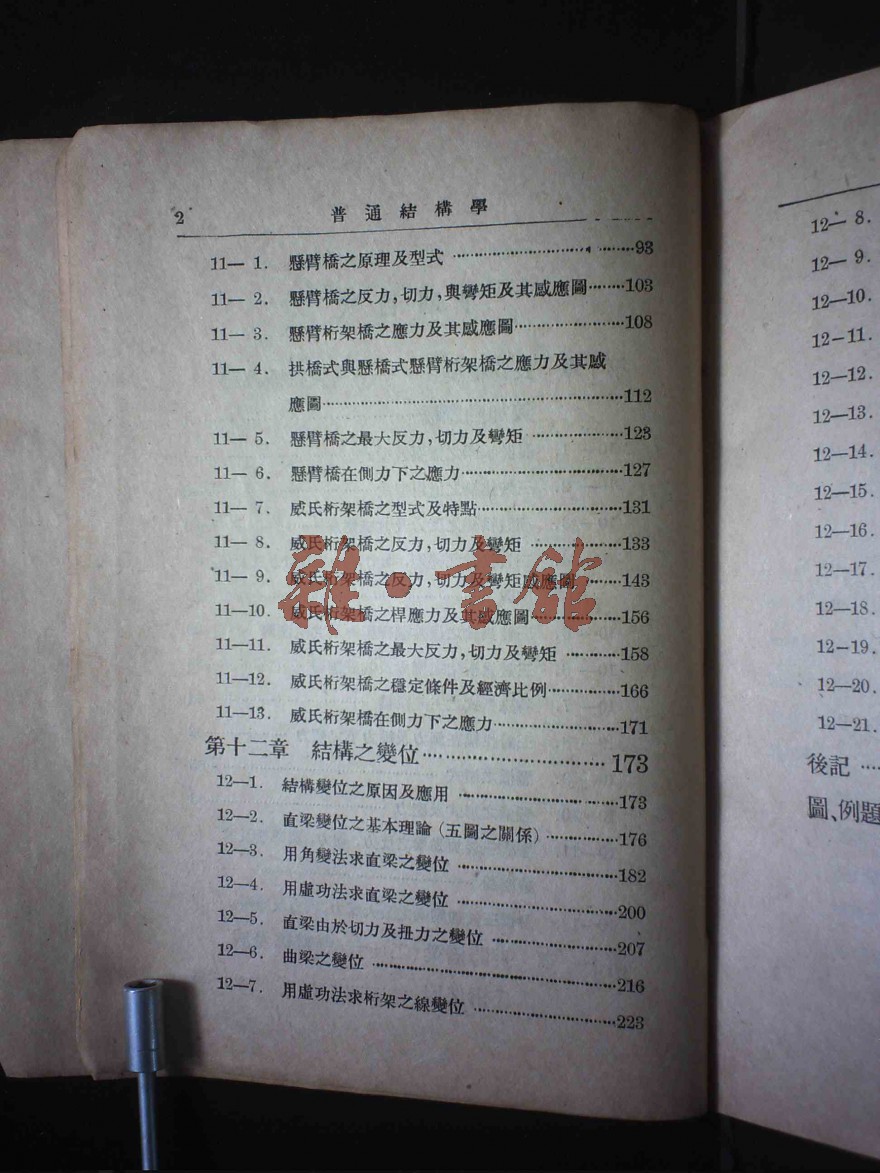 2
普通結構學
11— 1. 懸臂橋之原理及型式 ………………………93
11— 2. 懸臂橋之反力,切力,與彎矩及其感應圖………103
11— 3. 懸臂桁架橋之應力及其感應圖………………108
11— 4. 拱橋式與懸橋式懸臂桁架橋之應力及其感
應圖……………………………………………112
11— 5. 懸臂橋之最大反力,切力及彎矩………………123
11— 6. 懸臂橋在側力下之應力………………………127
11— 7. 威氏桁架橋之型式及特點……………………131
11— 8. 威氏桁架橋之反力,切力及彎矩 ………………133
11— 9. 威氏桁架橋之反力,切力及彎矩感應圖 ………143
11—10. 威氏桁架橋之桿應力及其感應圖……………156
11—11. 威氏桁架橋之最大反力,切力及彎矩 …………158
11—12. 威氏桁架橋之穩定條件及經濟比例……………166
11—13. 威氏桁架橋在側力下之應力…………………171
第十二章 結構之變位………………………173
12—1. 結構變位之原因及應用 ………………………173
12—2. 直梁變位之基本理論(五圖之關係)……………176
12—3. 用角變法求直梁之變位 ………………………182
12—4. 用虛功法求直梁之變位 ………………………200
12—5. 直梁由於切力及扭力之變位 …………………207
12—6. 曲梁之變位 ……………………………………216
12—7. 用虛功法求桁架之線變位 ……………………223
雜·書館
12— 8.
12— 9.
12—10.
12—11.
12—12.
12—13.
12—14.
12—15.
12—16.
12—17.
12—18.
12—19.
12—20.
12—21.
後記 …
圖、例題